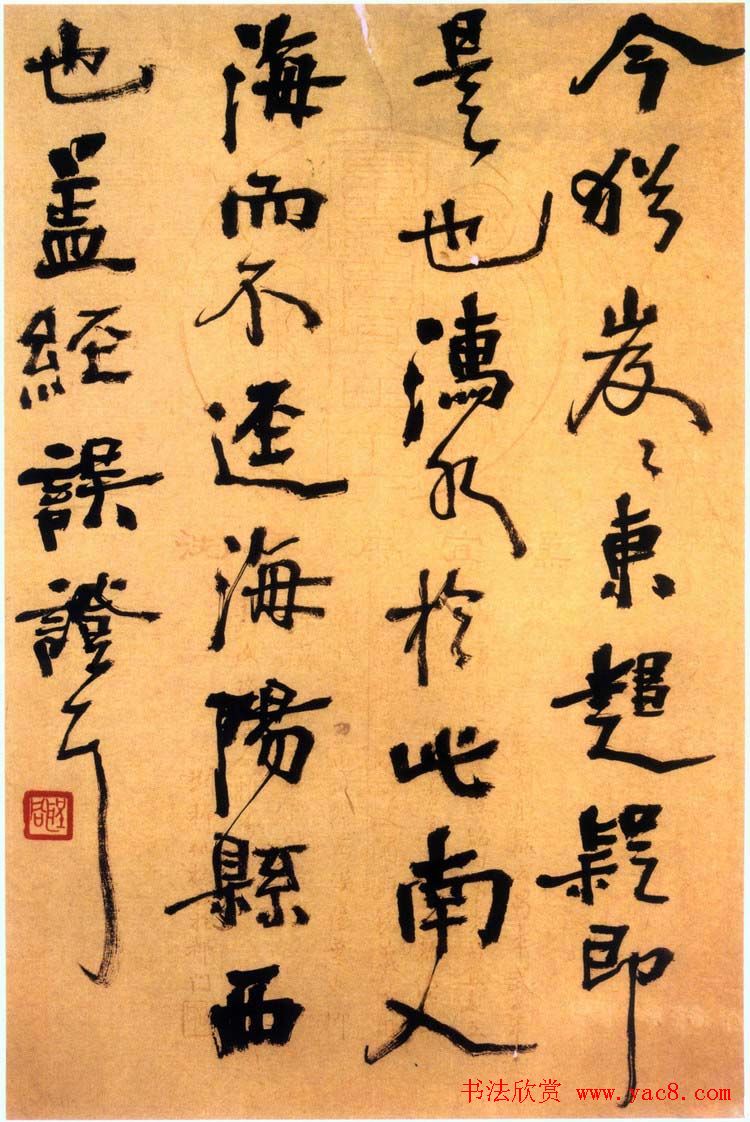 今猶岌〻東趨疑即
是也濡水於此南入
海而不逕海陽縣西
也蓋經誤證耳
书法欣赏 www.yac8.com